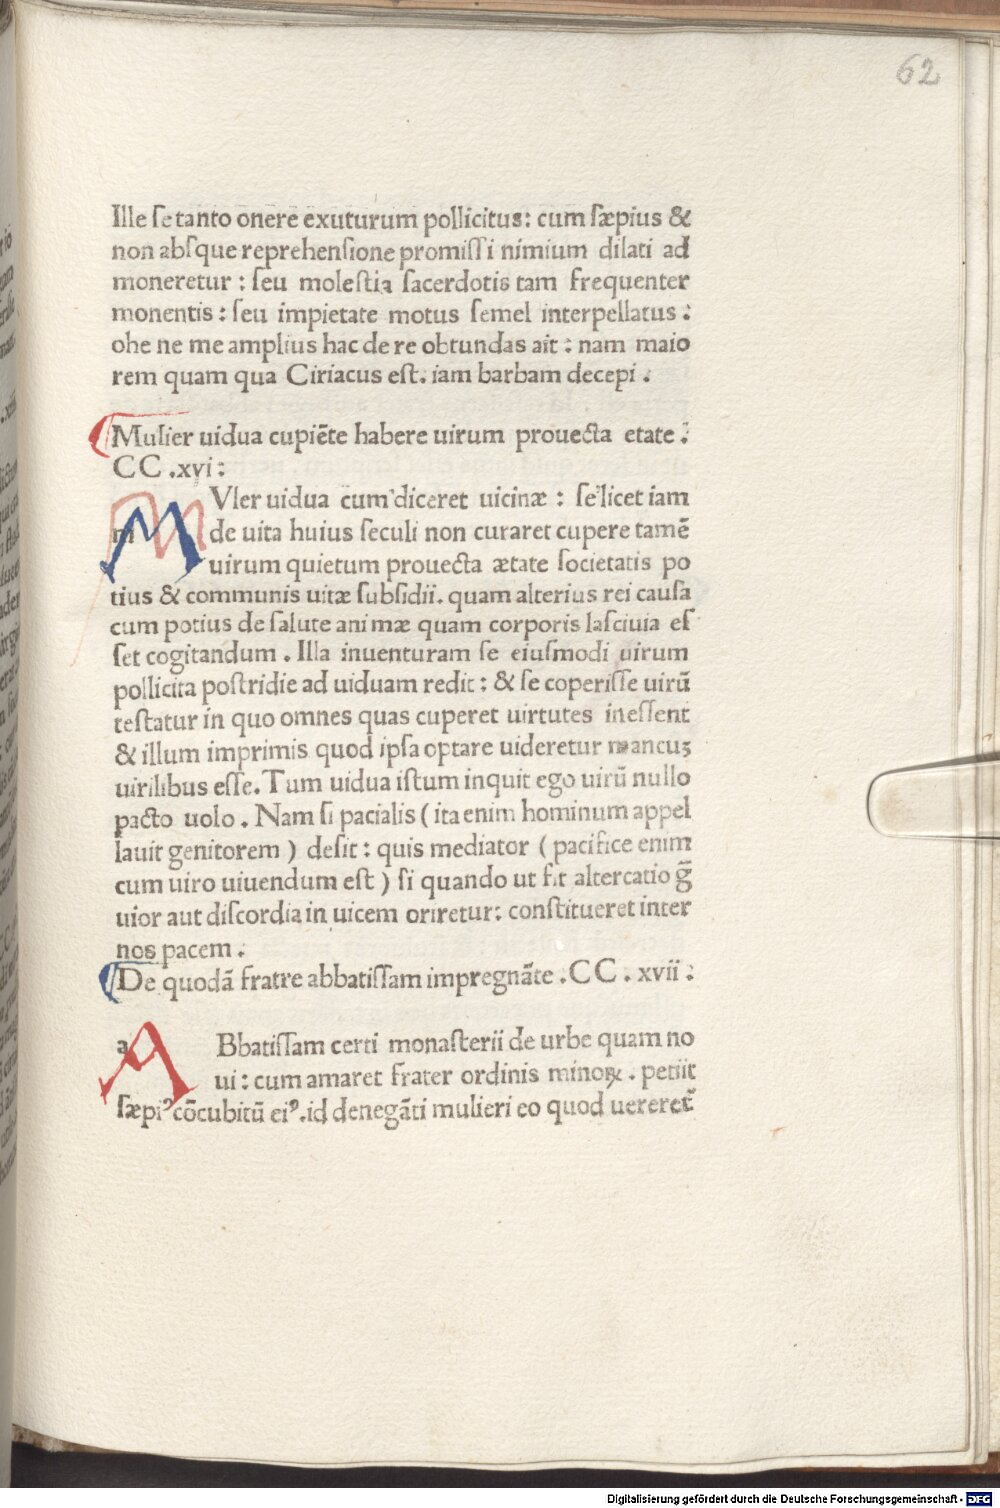 62
Ille ſe tanto onere exuturum pollicitus: cum ſæpius &
non abſque reprehenſione promiſſi nimium dilati ad
moneretur : ſeu moleſtia ſacerdotis tam frequenter
monentis : ſeu impietate motus ſemel interpellatus :
ohe ne me amplius hac de re obtundas ait : nam maio
rem quam qua Ciriacus eſt. iam barbam decepi .
Mulier uidua cupiēte habere uirum prouecta etate :
CC .xvi :
m VLer uidua cum diceret uicinæ : ſe licet iam
de uita huius ſeculi non curaret cupere tamē
uirum quietum prouecta ætate ſocietatis po
tius & communis uitæ ſubſidii. quam alterius rei cauſa
cum potius de ſalute animæ quam corporis laſciuia eſ
ſet cogitandum . Illa inuenturam ſe eiuſmodi uirum
pollicita poſtridie ad uiduam redit : & ſe coperiſſe uirū
teſtatur in quo omnes quas cuperet uirtutes ineſſent
& illum imprimis quod ipſa optare uideretur mancuꝫ
uirilibus eſſe. Tum uidua iſtum inquit ego uirū nullo
pacto uolo . Nam ſi pacialis ( ita enim hominum appel
lauit genitorem ) deſit : quis mediator ( pacifice enim
cum uiro uiuendum eſt ) ſi quando ut fit altercatio g̅
uior aut diſcordia in uicem oriretur: conſtitueret inter
nos pacem .
De quodā fratre abbatiſſam impregnāte .CC . xvii :
a ABbatiſſam certi monaſterii de urbe quam no
ui : cum amaret frater ordinis minoꝝ . petiit
ſæpiꝰ cōcubitū eiꝰ .id denegāti mulieri eo quod uereret̃
Digitalisierung gefördert durch die Deutsche Forschungsgemeinschaft - DFG